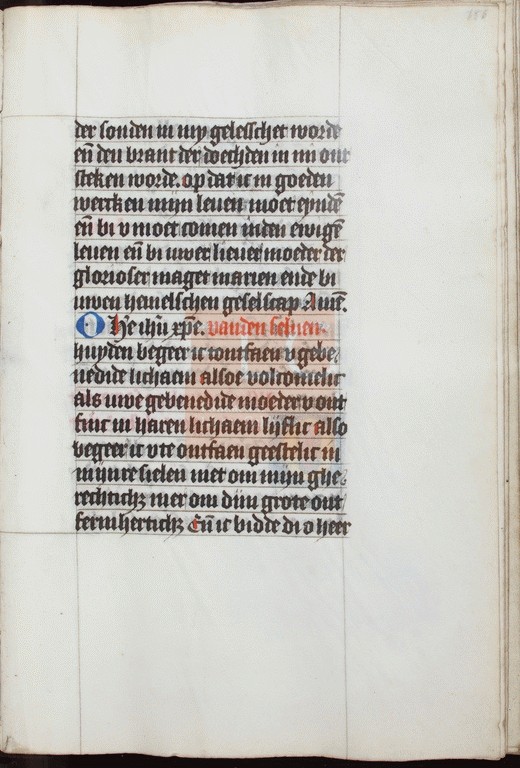 der sonden in my gelesschet worde
en̄ den brant der doechden in mi ont
steken worde. op dat ic in goeden
wercken mijn leuen moet eyndē
en̄ bi v moet comen inden ewigē
leuen en̄ bi uwer lieuer moeder der
glorioser maget marien ende bi
uwen hemelschen geselscap Amē.
O He ihū xpē. vanden seluen.
huyden begeer ic tontfaen v gebe⸗
nedide lichaem alsoe volcomelic
als uwe gebenedide moeder v ont
finc in haren lichaem lijflic also
begeer ic v te ontfaen geestelic in
mijnre sielen niet om mijn ghe⸗
rechtichz mer om dijn grote ont
fermhertichz En̄ ic bidde di o heer